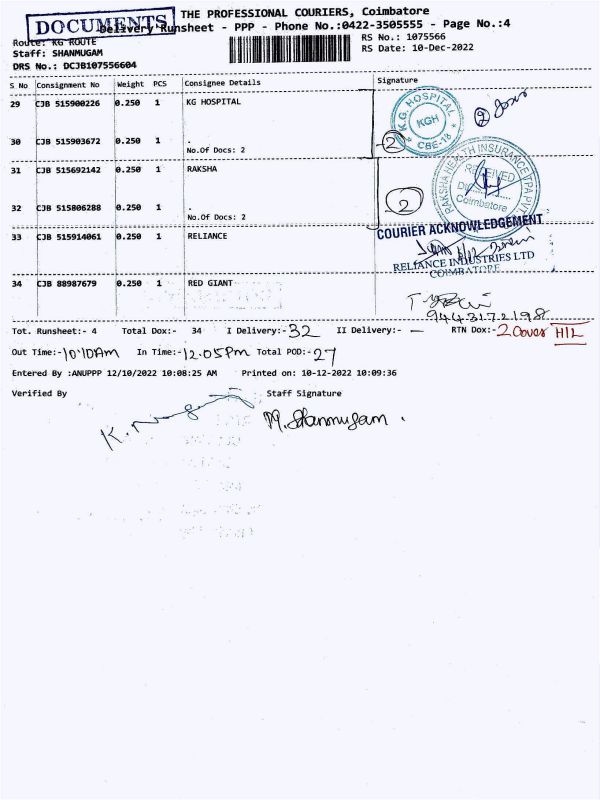 DOCUMENTS
THE PROFESSIONAL COURIERS, Coimbatore
Delivery Runsheet - PPP - Phone No.:0422-3505555 - Page No.:4
Route: KG ROUTE
RS No.: 1075566
Staff: SHANMUGAM
RS Date: 10-Dec-2022
DRS No.: DCJB107556604
S No Consignment No Weight PCS Consignee Details Signature
29 CJB 515900226 0.250 1 KG HOSPITAL
K.G. HOSPITAL
KGH
CBE-18
30 CJB 515903672 0.250 1 .
No.Of Docs: 2
2
31 CJB 515692142 0.250 1 RAKSHA
RAKSHA HEALTH INSURANCE TPA PVT
RECEIVED
Coimbatore
32 CJB 515806288 0.250 1 .
No.Of Docs: 2
2
33 CJB 515914061 0.250 1 RELIANCE
COURIER ACKNOWLEDGEMENT
RELIANCE INDUSTRIES LTD
COIMBATORE
34 CJB 88987679 0.250 1 RED GIANT
9443172198
Tot. Runsheet:- 4 Total Dox:- 34 I Delivery:- 32 II Delivery:- — RTN Dox:- 2 Cover HIL
Out Time:- 10.10Am In Time:- 12.05Pm Total POD:- 27
Entered By :ANUPPP 12/10/2022 10:08:25 AM Printed on: 10-12-2022 10:09:36
Verified By Staff Signature
M. Shanmugam .